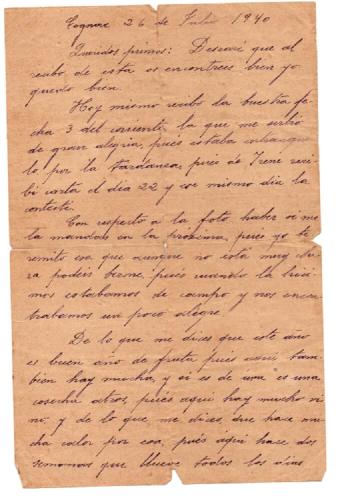 Cognac 26 de Julio 1940
Queridos primos: Desearé que al
recibo de esta os encontreis bien yo
quedo bien.
Hoy mismo recibo la buestra fe
cha 3 del corriente, la que me sirbio
de gran alegria, pues estaba intranqui
lo por la tardanza, pues de Irene reci
bi carta el dia 22 y ese mismo dia la
contesté.
Con respecto a la foto haber si me
la mandais en la proxima, pues yo te
remito esa que aunque no está muy cla
ra podeis berme, pues cuando la hici
mos estabamos de campo y nos encon
trabamos un poco alegre.
De lo que me dices que este año
es buen año de fruta pues aqui tam
bien hay mucha, y si es de uva es una
cosecha atroz, pues aqui hay mucho vi
no, y de lo que me dices que hace mu
cha calor por esa, pues aqui hace dos
semanas que llueve todos los dias